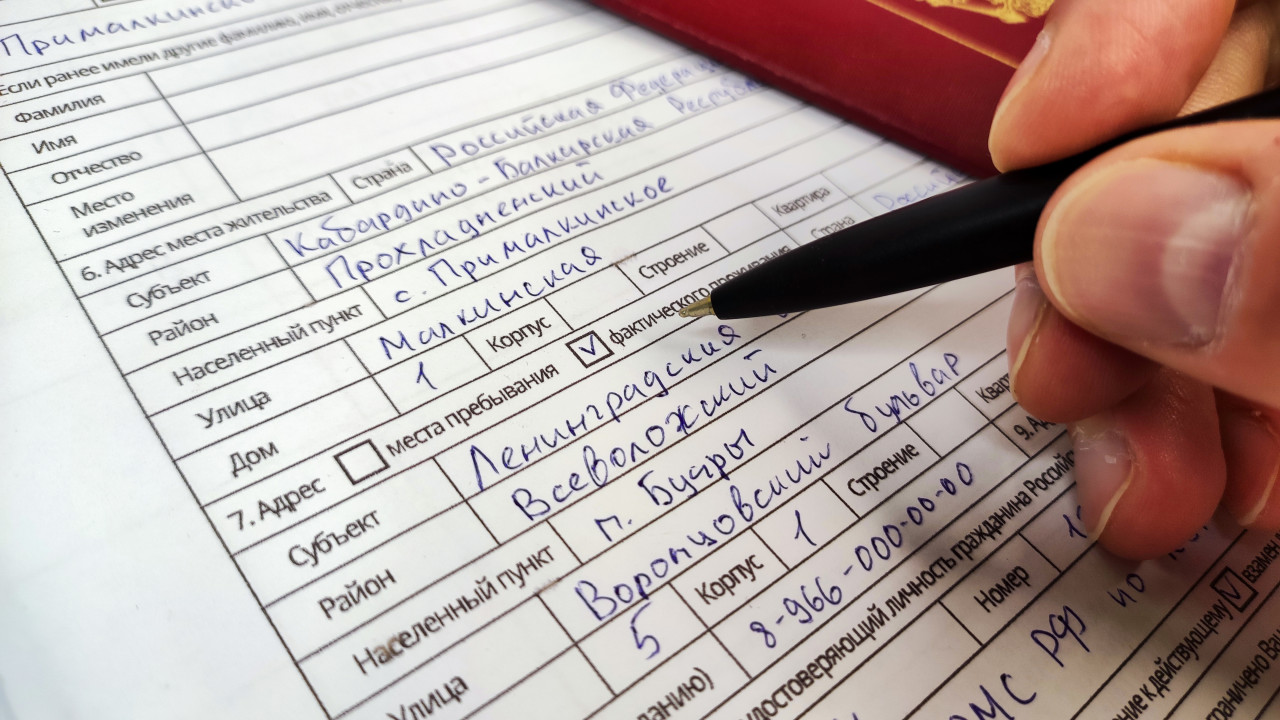 Прималкинско
Если ранее имели другие фамилию, имя, отчес
Фамилия
Имя
Отчество
Место изменения
6. Адрес места жительства Страна Российская Федерац
Субъект Кабардино-Балкирская Республ
Район Прохладненский
Населенный пункт с. Прималкинское
Улица Малкинская
Дом 1 Корпус Строение Квартира
7. Адрес места пребывания ✓ фактического проживания Страна Россий
Субъект Ленинградския
Район Всеволожский
Населенный пункт п. Бугры
Улица Воронцовский бульвар
5 Корпус 1 Строение Кварт
анию) 8-966-000-00-00 9.
удостоверяющий личность гражданина Россий
Номер 1
МС РФ по
ние к действующему ✓ взамен
граничено